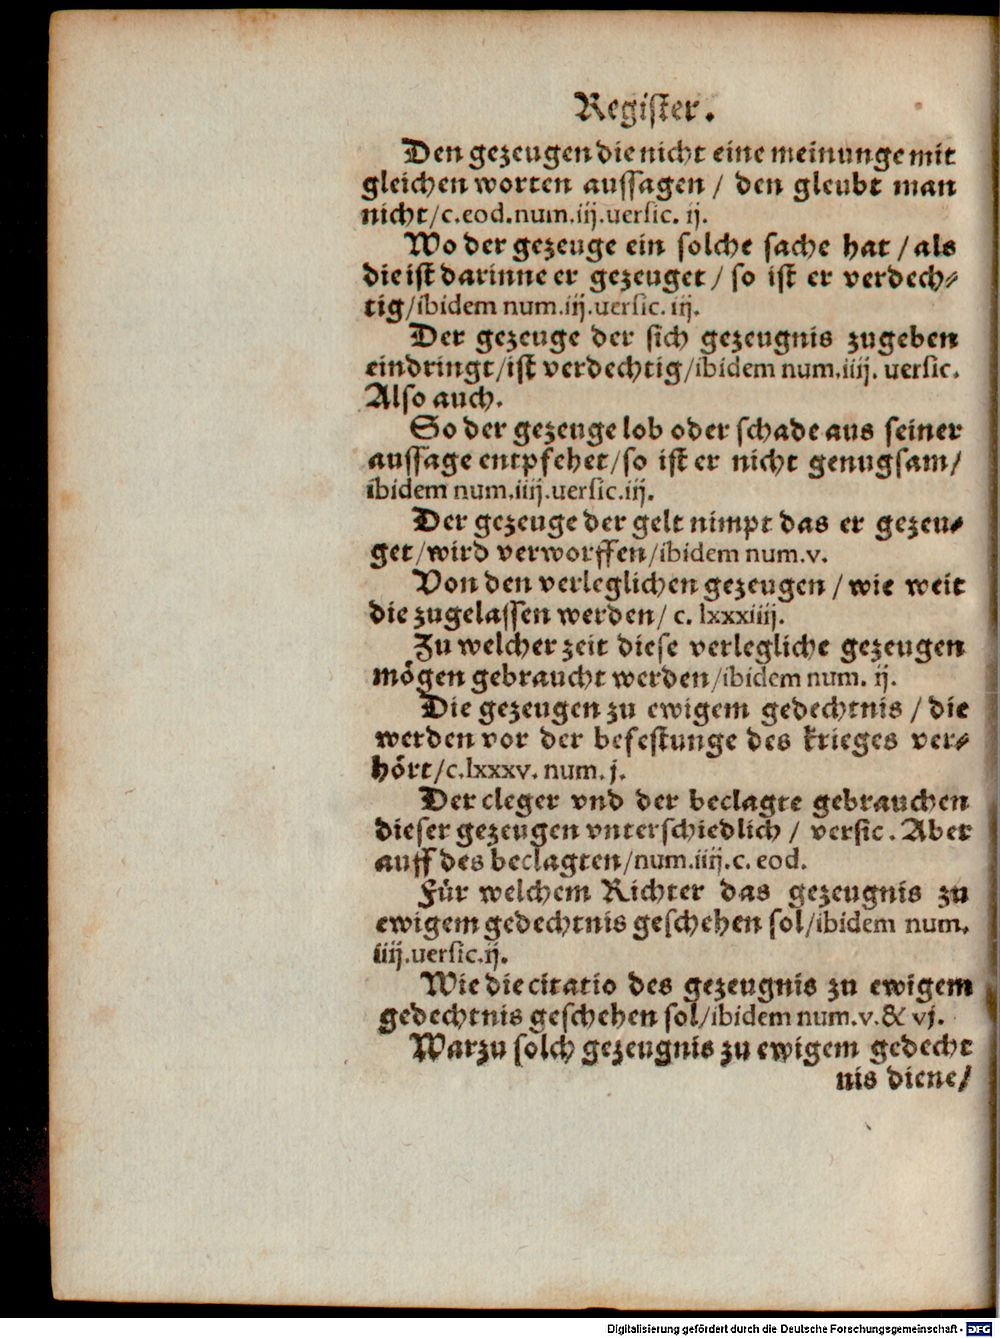 Register.
Den gezeugen die nicht eine meinunge mit
gleichen worten aussagen / den gleubt man
nicht/c.eod.num.iij.uersic. ij.
Wo der gezeuge ein solche sache hat / als
die ist darinne er gezeuget / so ist er verdech⸗
tig/ibidem num.iij.uersic. iij.
Der gezeuge der sich gezeugnis zugeben
eindringt/ist verdechtig/ibidem num.iiij. uersic.
Also auch.
So der gezeuge lob oder schade aus seiner
aussage entpfehet/so ist er nicht genugsam/
ibidem num.iiij.uersic.iij.
Der gezeuge der gelt nimpt das er gezeu⸗
get/wird verworffen/ibidem num.v.
Von den verleglichen gezeugen / wie weit
die zugelassen werden/ c. lxxxiiij.
Zu welcher zeit diese verlegliche gezeugen
mögen gebraucht werden/ibidem num. ij.
Die gezeugen zu ewigem gedechtnis / die
werden vor der befestunge des krieges ver⸗
hört/c.lxxxv. num. j.
Der cleger vnd der beclagte gebrauchen
dieser gezeugen vnterschiedlich / versic. Aber
auff des beclagten/num.iiij.c. eod.
Für welchem Richter das gezeugnis zu
ewigem gedechtnis geschehen sol/ibidem num.
iiij.uersic.ij.
Wie die citatio des gezeugnis zu ewigem
gedechtnis geschehen sol/ibidem num.v.& vj.
Warzu solch gezeugnis zu ewigem gedecht
nis diene/
Digitalisierung gefördert durch die Deutsche Forschungsgemeinschaft - DFG